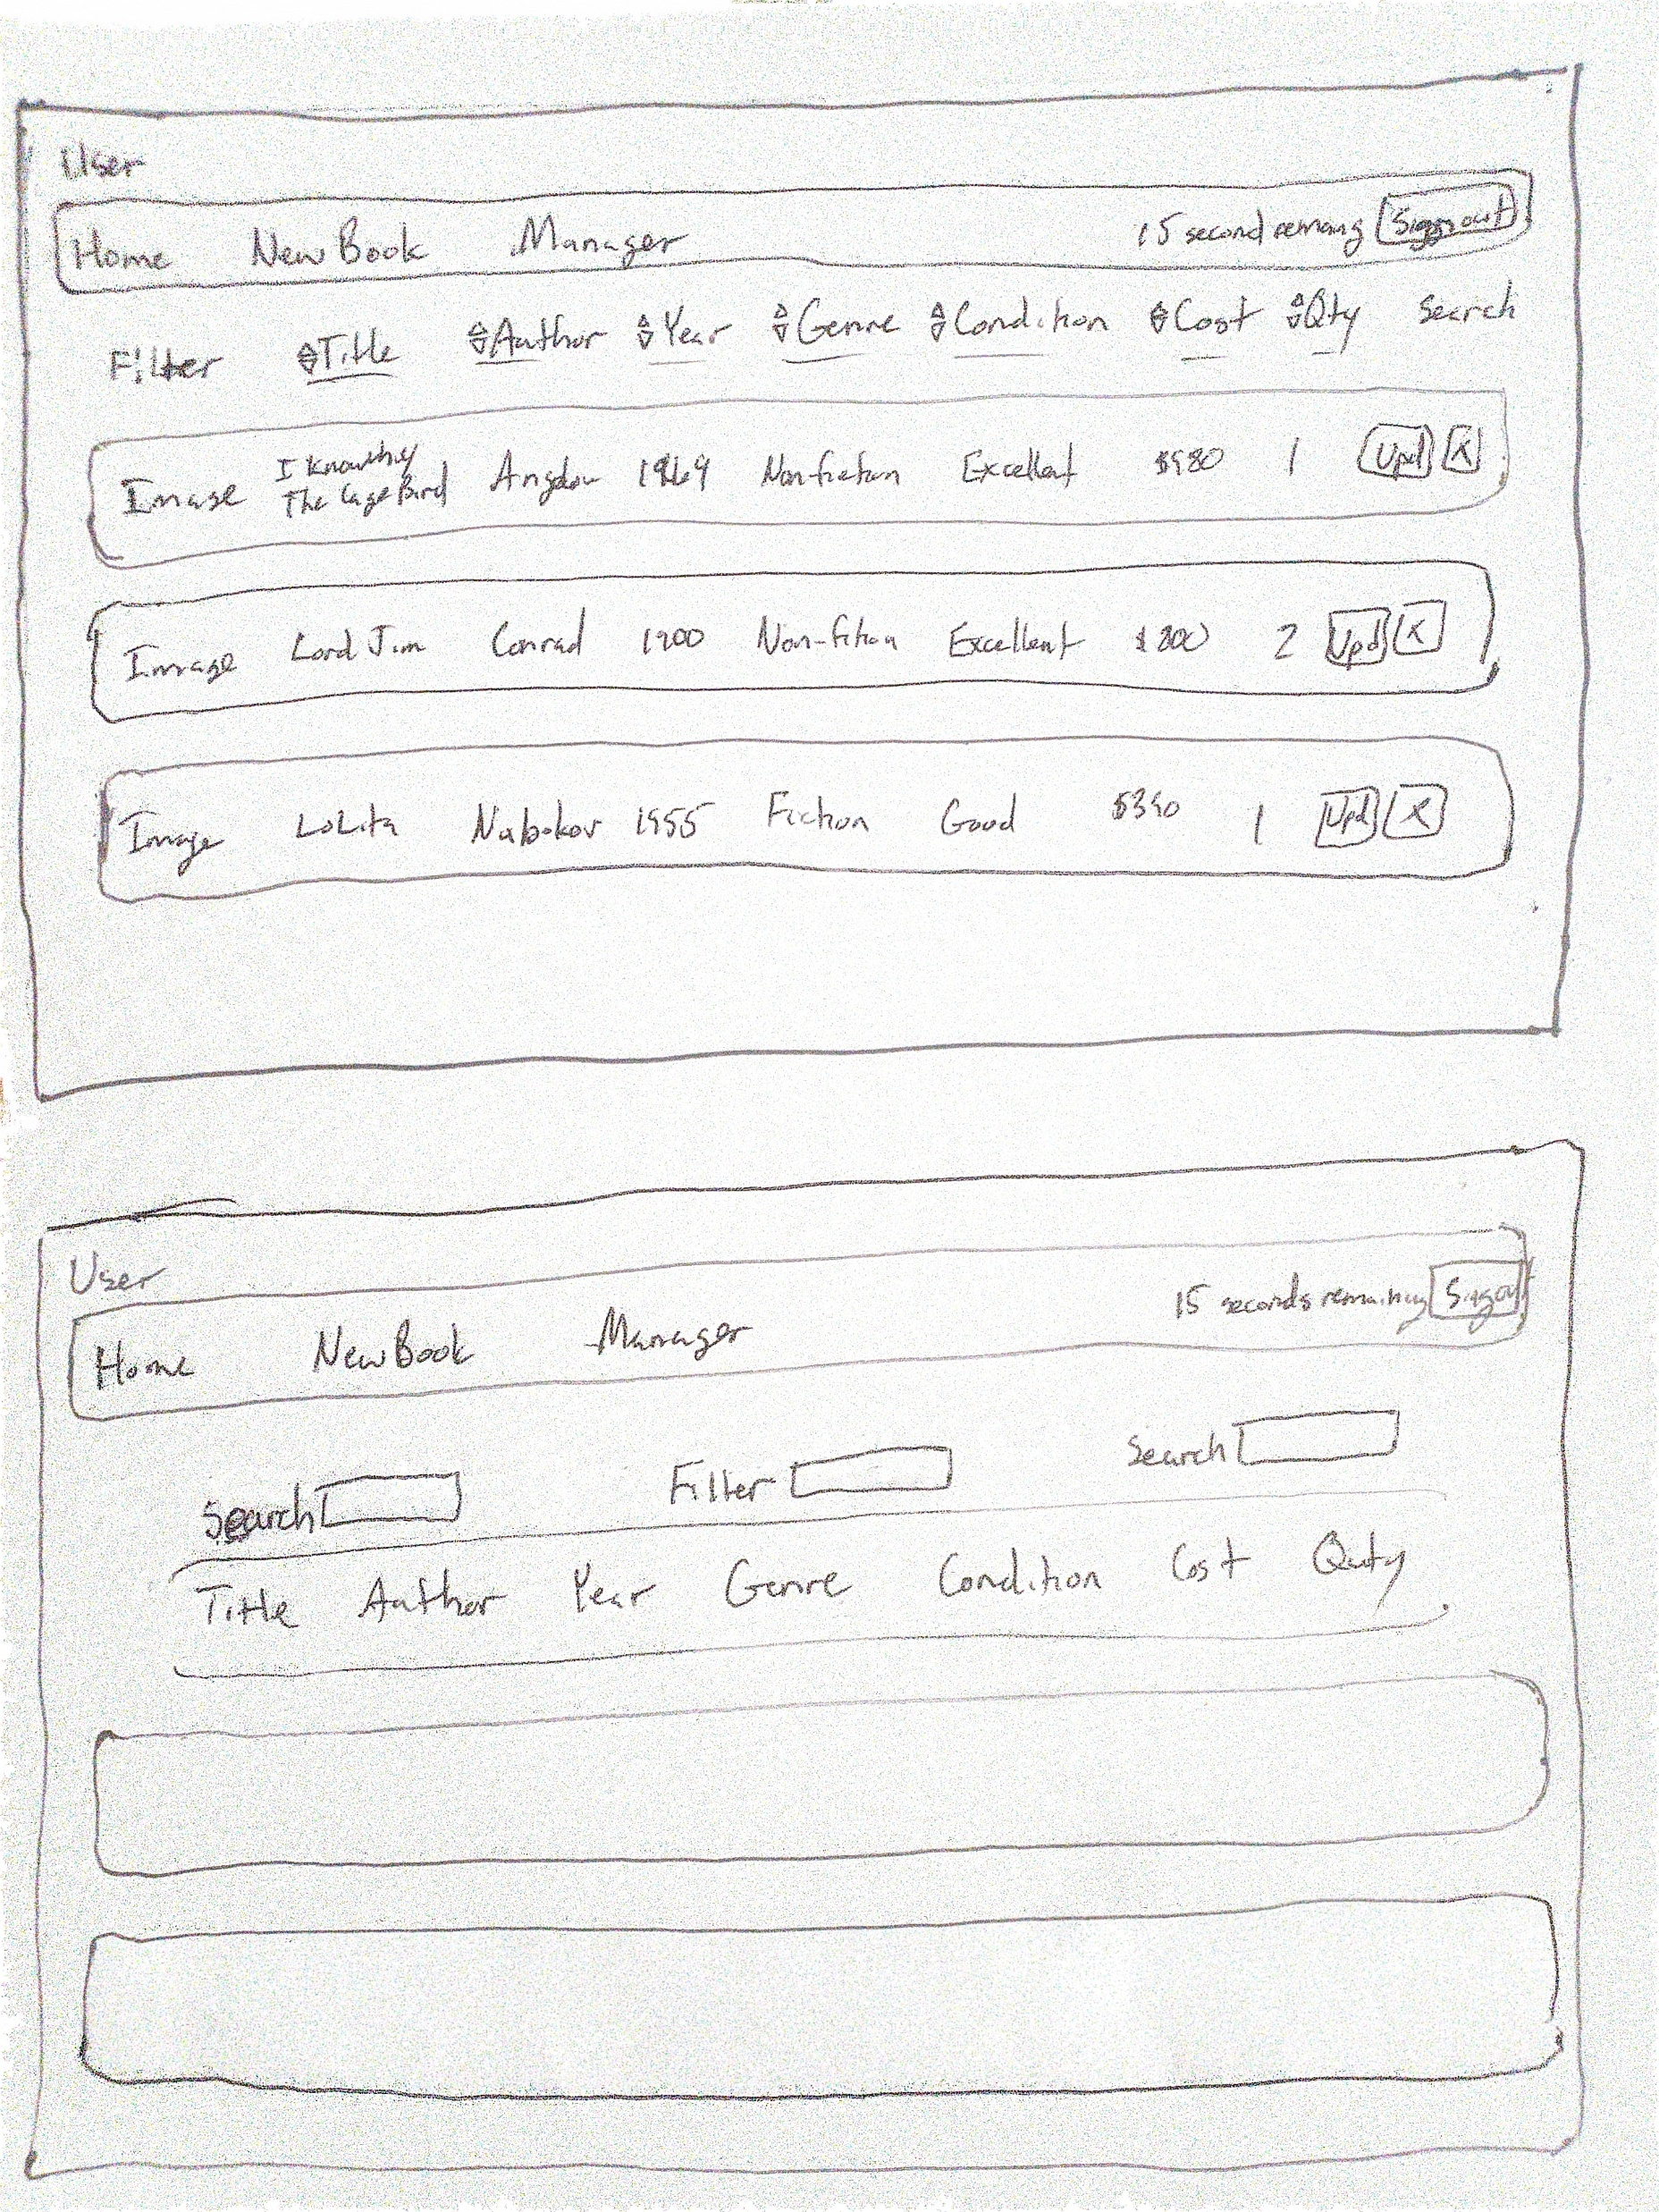 User
Home New Book Manager 15 second remaing Signout
Filter Title Author Year Genre Condition Cost Qty Search
I Know why
Image The Cage Bird 1969 Excellent 1 Upd X
Image Lord Jim Conrad 1900 Non-fition Excellent 2 Upd X
Image LoLita Nabokov 1955 Fiction Good 1 Upd X
User
Home New Book Manager 15 seconds remaining
Search Filter Search
Title Author Year Genre Condition Cost